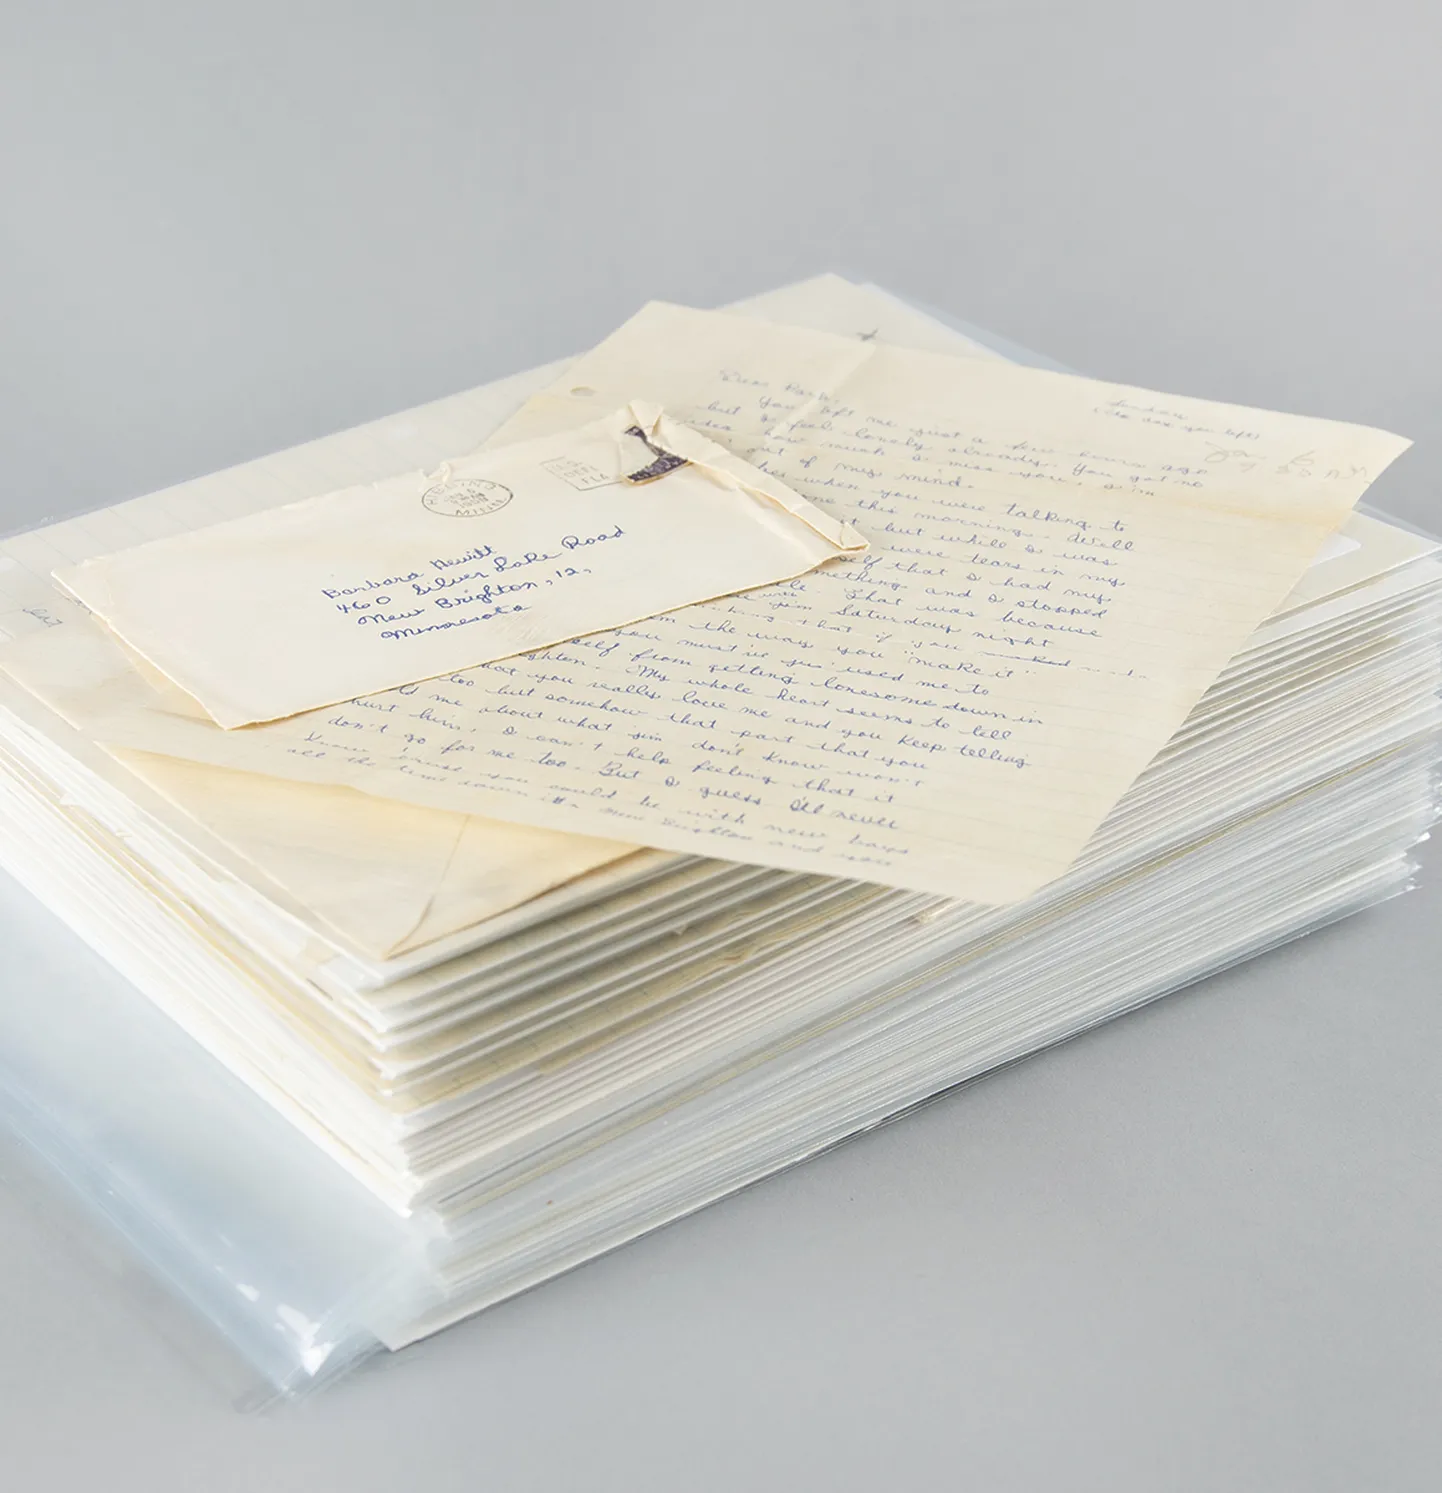 HIBBING
MINN
1958
Barbara Hewitt
460 Silver Lake Road
New Brighton, 12,
Minnesota
Dear Barb:
Sunday
You left me just a few hours ago
but I feel lonely already. You got no
idea how much I miss you. I'm
out of my mind.
when you were talking to
me this morning. Well
but while I was
were tears in my
self that I had my
mething and I stopped
That was because
Jim Saturday night
that if you
m the way you "make it"
you must've jus' used me to
self from getting lonesome down in
ghton. My whole heart seems to tell
that you really love me and you keep telling
too but somehow that part that you
ld me about what Jim don't know won't
hurt him, I can't help feeling that it
don't go for me too. But I guess I'll never
know 'cause you could be with new boys
all the time down in New Brighton and